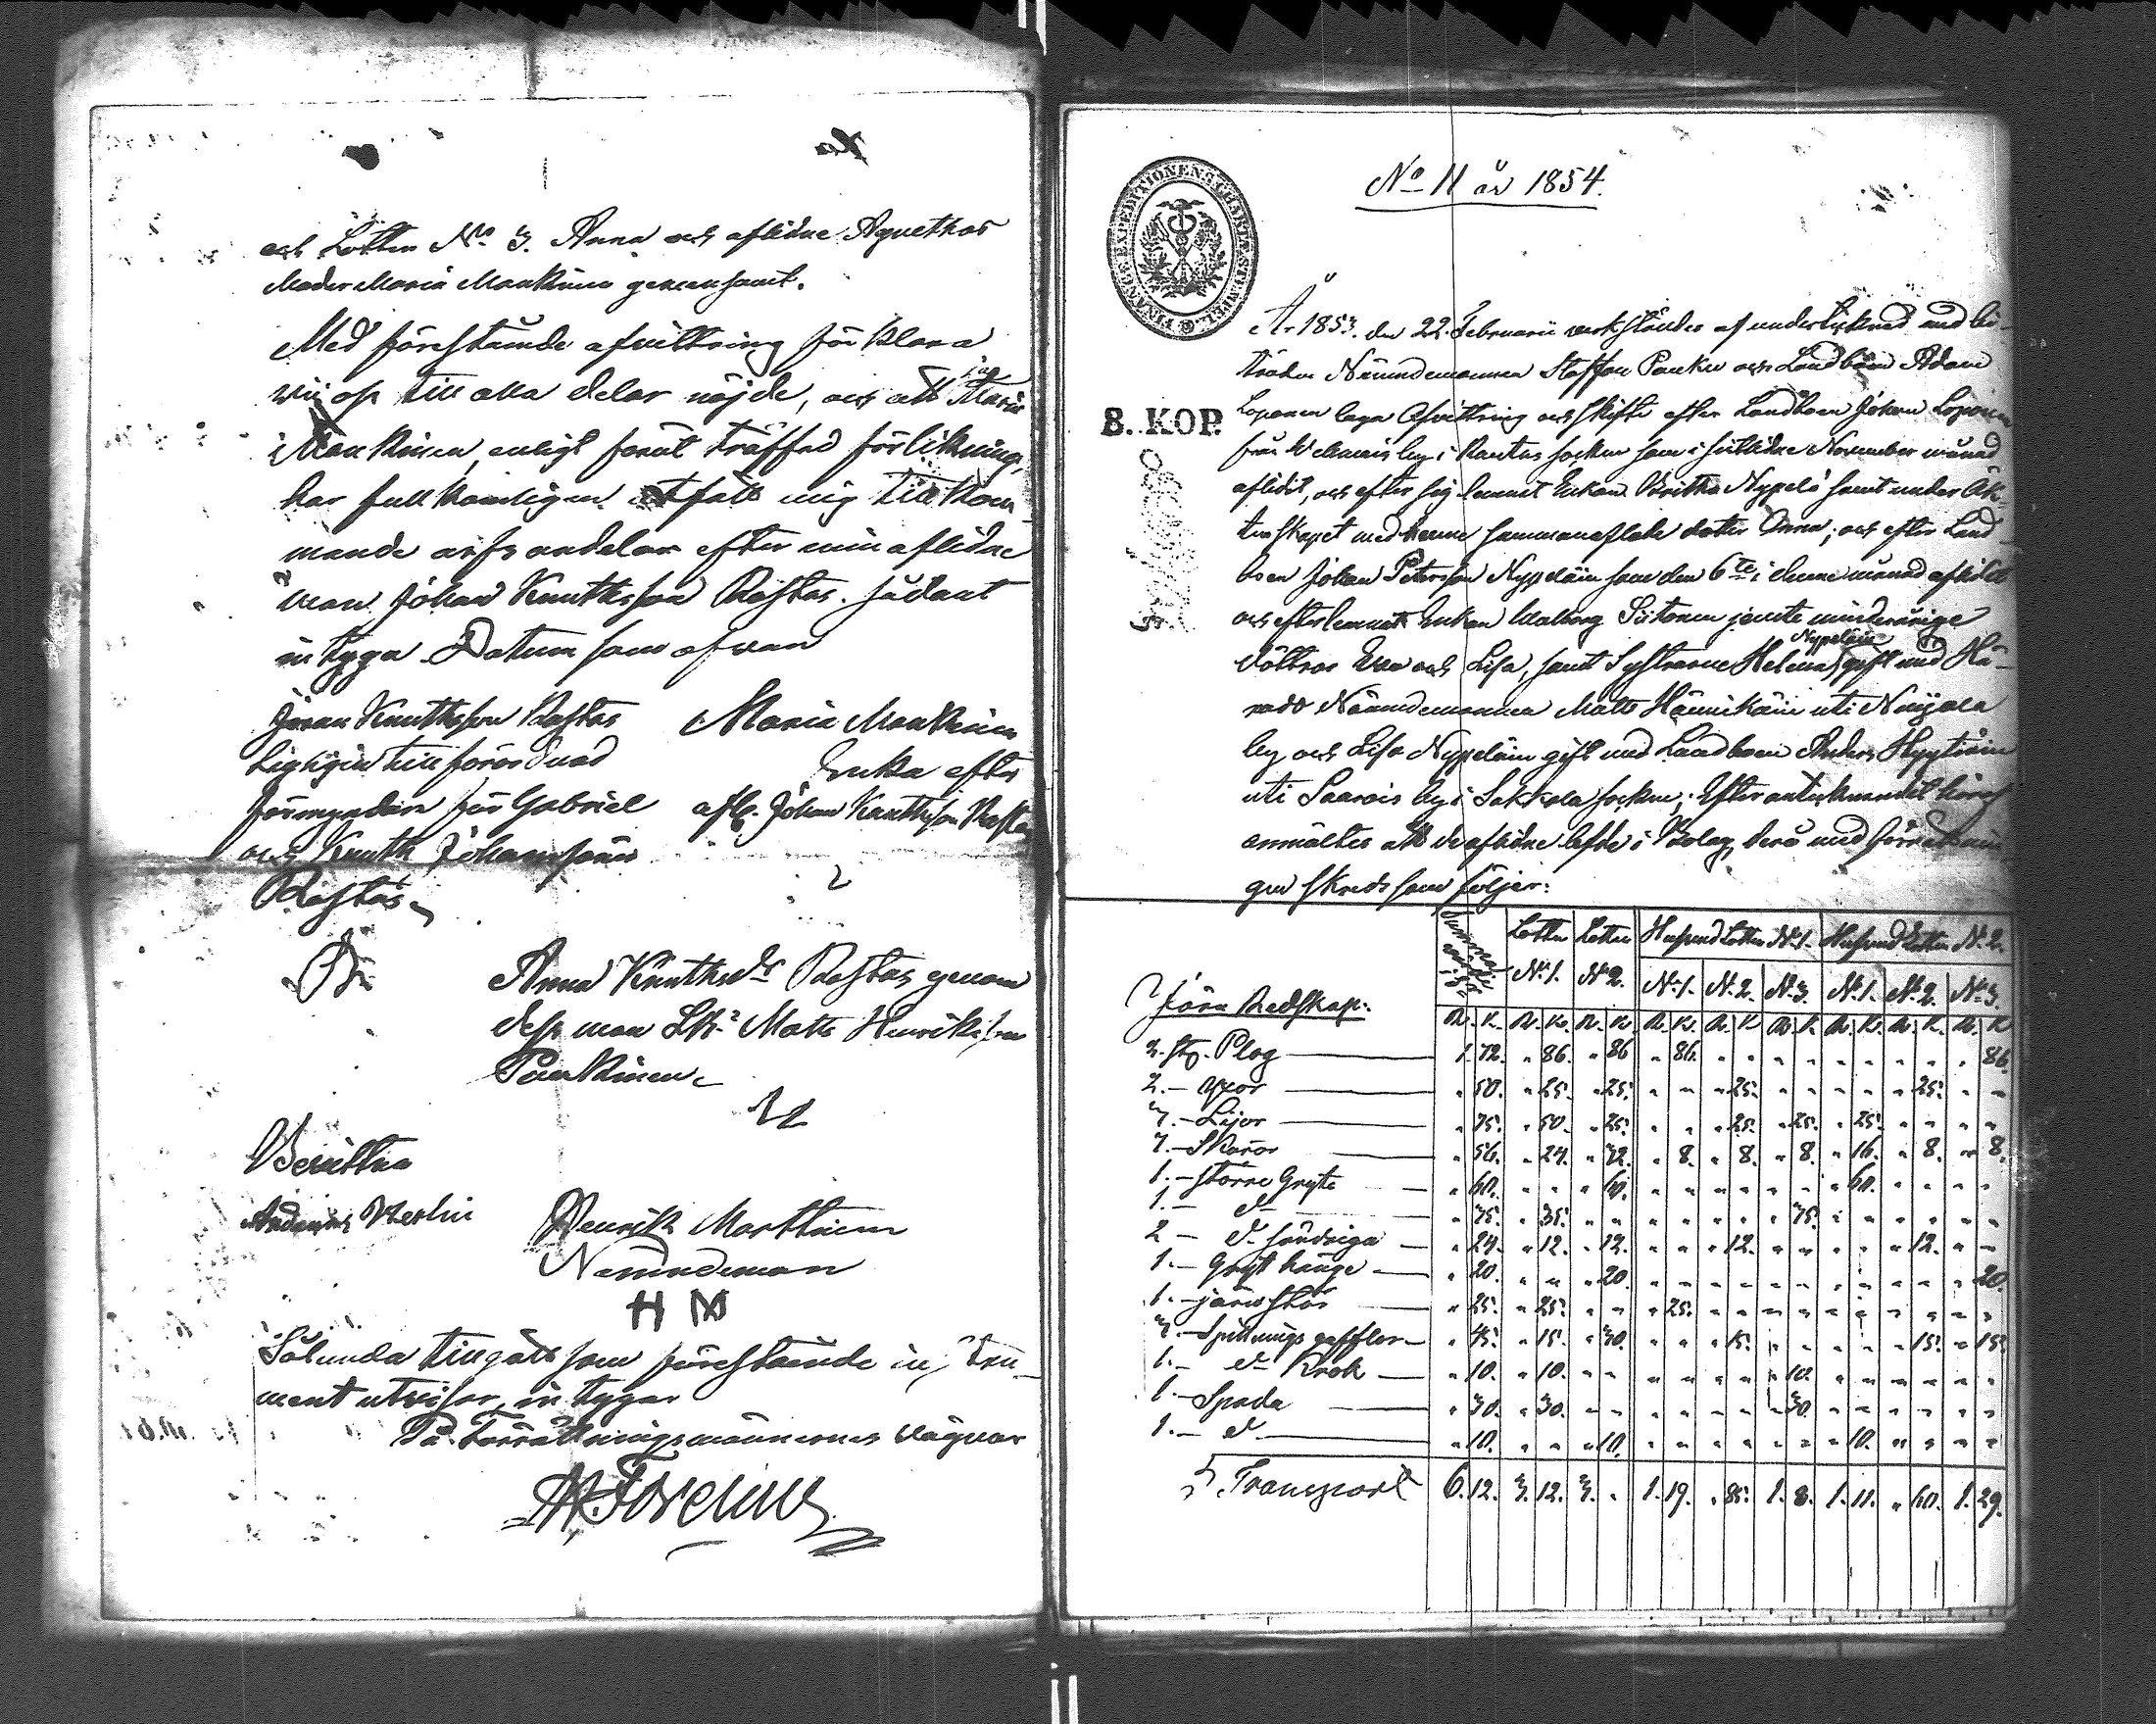 och Lotten No 3. Anna och aflidne Agnethas
Moder Maria Mankinen gemensamt.
Med förestående afvittring förklara
wii oss till alla delar nöjde, och att jag Maria
Mankinen, enligt förut träffad förlikning,
har fullkomligen utfått mig tillkom-
mande arfs andelar efter min aflidne
man Johan Knuthsson Rastas. sådant
intyga Datum som ofvan
Göran Knuthsson Rastas
tillförordnad
förmyndare för Gabriel
och Knuth Johanssöner
Rastas
Maria Mankinen
Enka efter
afl. Johan Knuthsson Rastas
Anna Knuthsdr Rastas genom
dess man Matts Henriksson
Paukkinen
Bevittna
Henrik Marttinen
Nämndeman
H M
Sålunda tillgått som förestående in stru-
ment utvisar, intygar
På Förrättningsmännernes vägnar
No 11 år 1854.
FINANCE EXPEDITIONENS CHARTÆ STEMPEL
8. KOP.
År 1853. den 22. Februarii verkställdes af undertecknad med bi-
träde Nämndemannen Staffan Paukku och Landbon Adam
Loponen laga Afvittring och skifte efter Landboen Johan Loponen
från by i Rautus socken som i sistlidne November månad
aflidit, och efter sig lemnat Enkan Britha Nypelö samt under Äk-
tenskapet med henne sammanaflade dotter Anna; och efter Land-
boen Johan Petersson Nypeläin som den 6te i denne månad aflidit
och efterlemnat Enkan Walborg Siitonen jemte minderårige
döttrar Eva och Lisa, samt Systrarne Helena Nypeläin gift med Hä-
rads Nämndemannen Matts Hännikäin uti Noisjala
by och Lisa Nypeläin gift med Landboen Anders Hyytiäin
uti Saarois by i Sakkola socken; Efter anteknandet häraf
anmältes att de aflidne lefde i Bolag, derå med förrättnin-
gen skreds som följer:
Summa värde i Sr | Lotten No 1. | Lotten No 2. | Hufvud Lotten No 1. | Hufvud Lotten No 2.
No 1. No 2. No 3. No 1. No 2. No 3.
Jern Redskap: R. K. R. K. R. K. R. K. R. K. R. K. R. K. R. K. R. K.
2. st. Plog 1. 72. " 86. " 86 " 86. " " " " " " " " " 86.
2. — yxor " 50. " 25. " 25. " " " 25. " " " " " 25. " "
3. — Lijor " 75. " 50. " 25. " " " 25. " 25. " 25. " " " "
7. — Skäror " 56. " 24. " 32. " 8. " 8. " 8. " 16. " 8. " 8.
1. — större Gryta " 60. " " " 60. " " " " " " " 60. " " " "
1. — d " 35. " 35. " " " " " " " 35. " " " " " "
2 — d söndriga " 24. " 12. " 12. " " " 12. " " " " " 12. " "
1. — Gryt hänge " 20. " " " 20. " " " " " " " " " " " 20.
1. — järnstör " 25. " 25. " " " 25. " " " " " " " " " "
3. — Spittnings gafflar " 45. " 15. " 30. " " " 15. " " " " " 15. " 15.
1. — d Krok " 10. " 10. " " " " " " " 10. " " " " " "
1. — Spada " 30. " 30. " " " " " " " 30. " " " " " "
1. — d " 10. " " " 10. " " " " " " " 10. " " " "
Transport 6. 12. 3. 12. 3. " 1. 19. " 85. 1. 8. 1. 11. " 60. 1. 29.